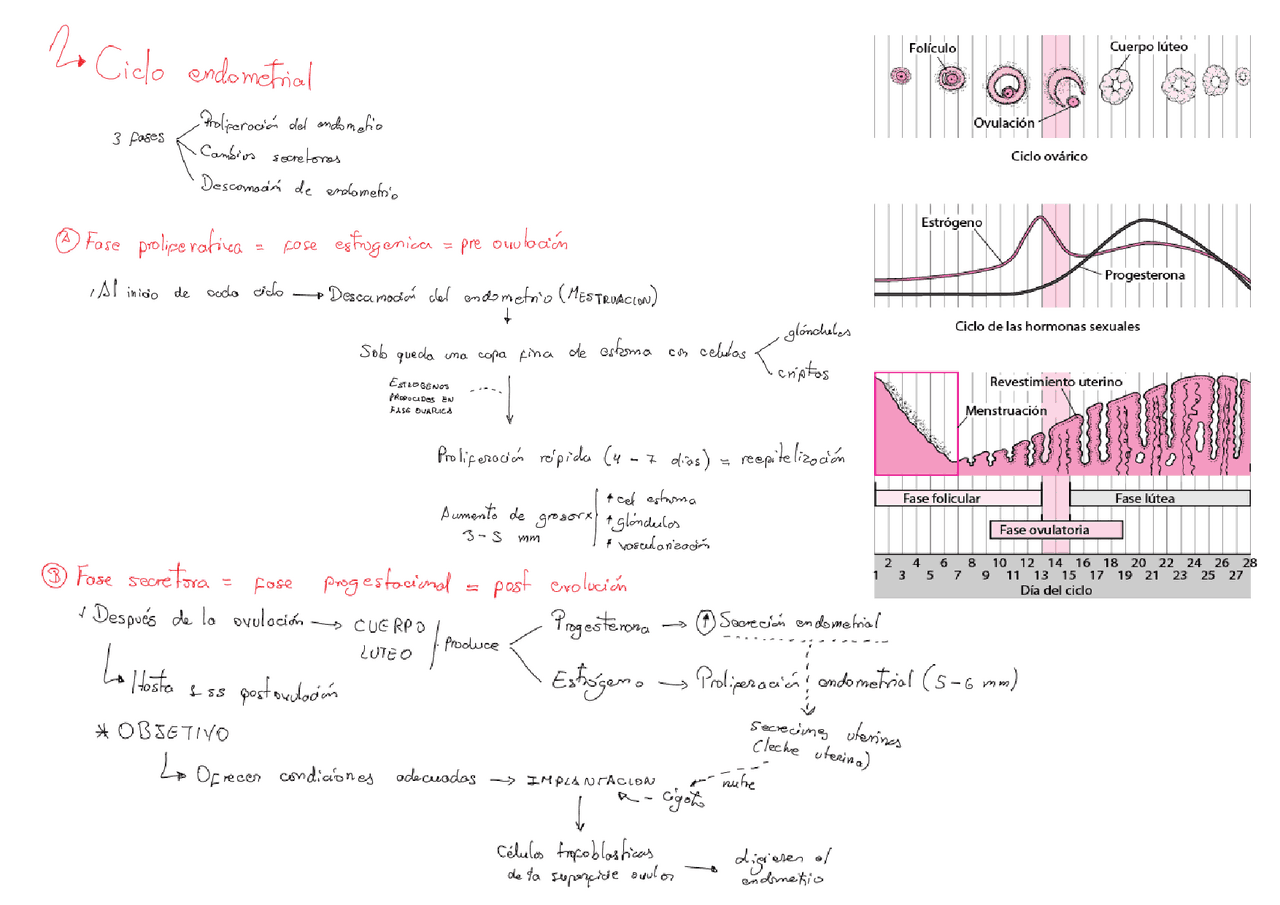 2 Ciclo endometrial
3 fases
Proliferación del endometio
Cambios secretores
Descamación de endometrio
A Fase proliferativa = fase estrogenica = pre ovulación
Al inicio de cada ciclo → Descamación del endometrio (MESTRUACION)
Solo queda una capa fina de estroma con celulas
glándulas
criptas
ESTROGENOS
PRODUCIDOS EN
FASE OVARICA
Proliferación rápida (4 - 7 dias) = reepitelización
Aumento de grosor x
3 - 5 mm
↑ cel estroma
↑ glándulas
↑ vascularización
B Fase secretora = fase progestacional = post evolución
✓ Después de la ovulación → CUERPO
LUTEO
Produce
Progesterona → ↑ Secreción endometrial
Estrógeno → Proliferación endometrial (5-6 mm)
Hasta 1 ss postovulación
* OBJETIVO
Ofrecer condiciones adecuadas → IMPLANTACION
Secreciones uterinas
(leche uterina)
nutre
Cigoto
Células trofoblasticas
de la superficie ovular
→ digieren el
endometrio
Folículo
Cuerpo lúteo
Ovulación
Ciclo ovárico
Estrógeno
Progesterona
Ciclo de las hormonas sexuales
Revestimiento uterino
Menstruación
Fase folicular
Fase lútea
Fase ovulatoria
2 4 6 8 10 12 14 16 18 20 22 24 26 28
1 3 5 7 9 11 13 15 17 19 21 23 25 27
Día del ciclo